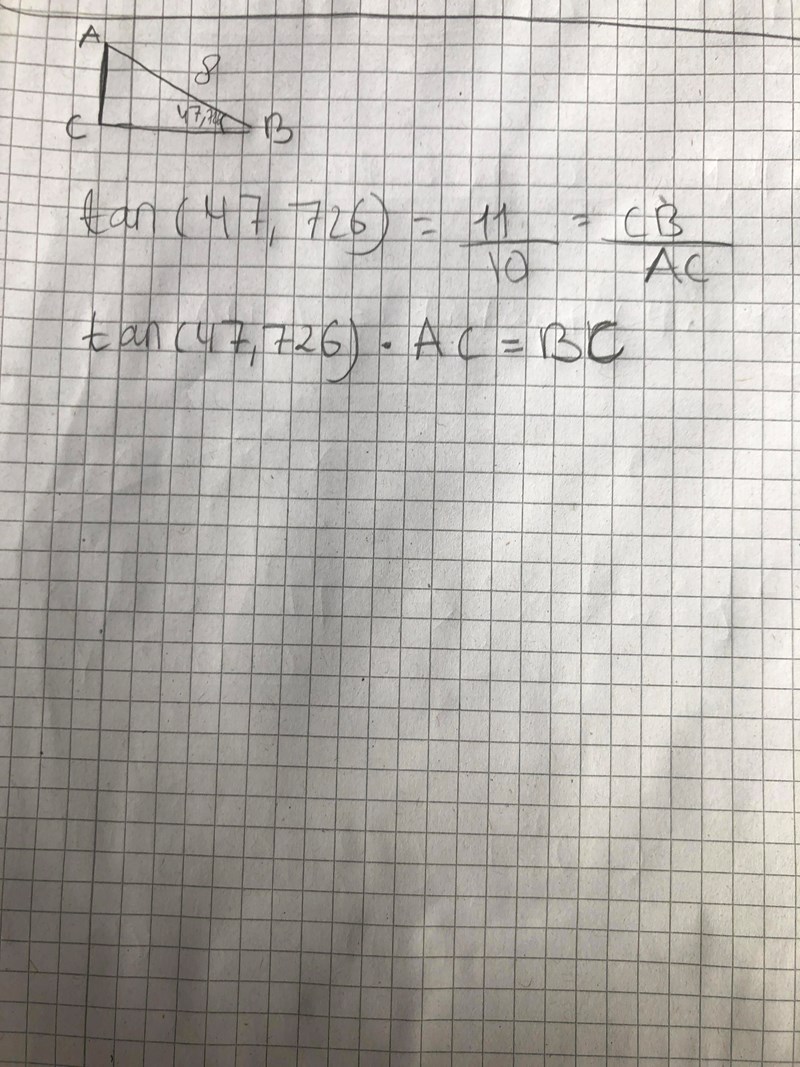 A
8
47,726
C
B
tan(47,726) = 11/10 = CB/AC
tan(47,726) · AC = BC